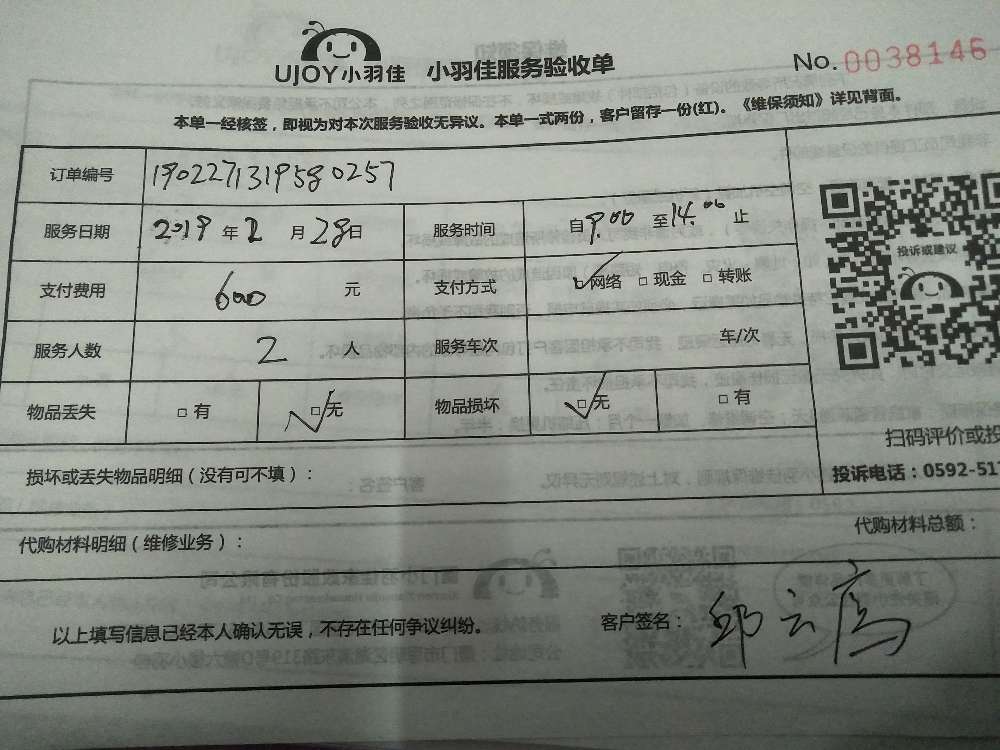 UJOY小羽佳 小羽佳服务验收单 No. 0038146
本单一经核签，即视为对本次服务验收无异议。本单一式两份，客户留存一份(红)。《维保须知》详见背面。
订单编号 1902271319580257
服务日期 2019 年 2 月 28 日 服务时间 自 9.00 至 14.00 止
支付费用 600 元 支付方式 ☑网络 □现金 □转账
服务人数 2 人 服务车次 车/次
物品丢失 □有 ☑无 物品损坏 ☑无 □有
投诉或建议
扫码评价或投
投诉电话：0592-517
损坏或丢失物品明细（没有可不填）：
代购材料明细（维修业务）： 代购材料总额：
以上填写信息已经本人确认无误，不存在任何争议纠纷。 客户签名：邱云